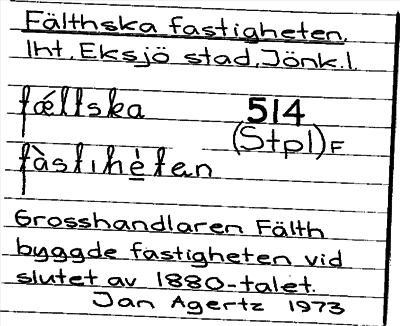 Fälthska fastigheten.
Iht. Eksjö stad, Jönk.l.
fǽltska 514
(Stpl)F
fàstihètan
Grosshandlaren Fälth
byggde fastigheten vid
slutet av 1880-talet.
Jan Agertz 1973